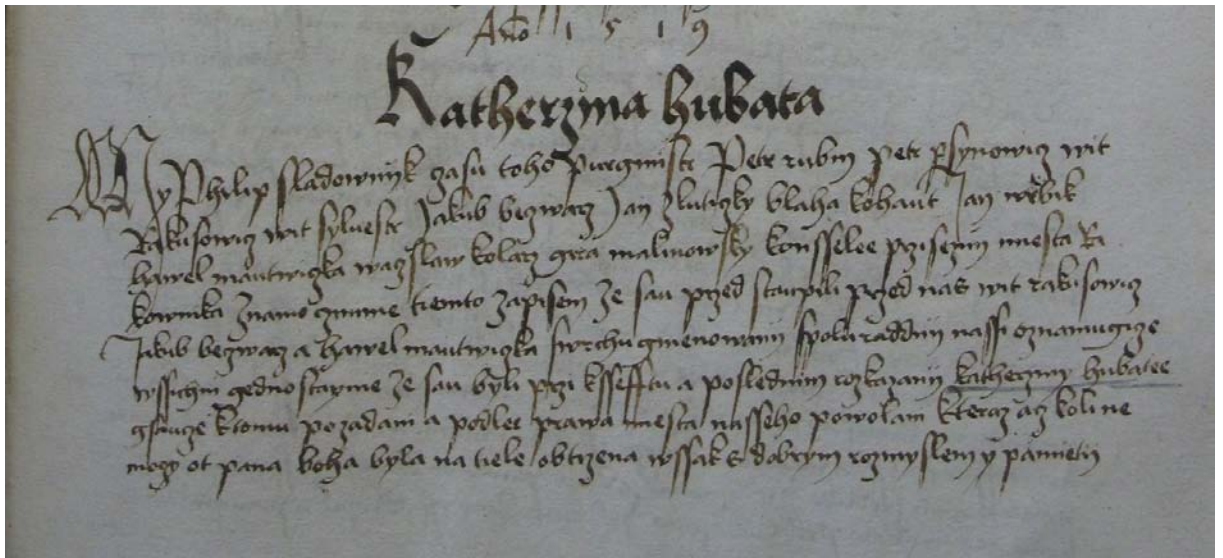 Año 1 5 1 9
Katherzina hubata
My Philip sladownyk czasu toho purgmistr Petr rubin petr wit
Rakusowicz wit sylvestr Jakub bezwacz Jan zluticzky blaha kohaut Jan wrbik
hawel mautwiczka waczslaw kolacz gira malinowsky konsselee przisezni miesta Ra
kownika znamo czinime tiemto zapisem ze sau przed staupili przed nas wit rakusowicz
Jakub bezwacz a hawel mautwiczka swrchu gmenowani spolu raddny nassi oznamugicze
wssichni gednostayne ze sau byli przi ksseftu a poslednim rozkazanij katherziny hubatee
gsauze ktomu pozadani a podlee prawa miesta nasseho powolani kteraz acz koli ne
moczy ot pana boha byla na tiele obtizena wssak s dobrym rozmyslem y pamieti